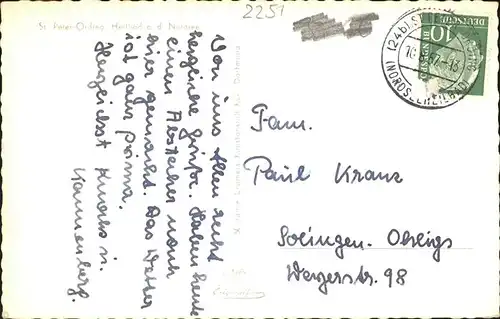 2251
St. Peter-Ording Heilbad a. d. Nordsee
Von uns allen recht
herzliche Grüße. Haben heute
einen Abstecher nach
hier gemacht. Das Wetter
ist ganz prima.
Herzlichst
Kannenberg.
Fam.
Paul Kranz
Solingen-Ohligs
Wegerstr. 98
(24b) ST.
(NORDSEEHEILBAD)
DEUTSCHE
BUNDESPOST
10